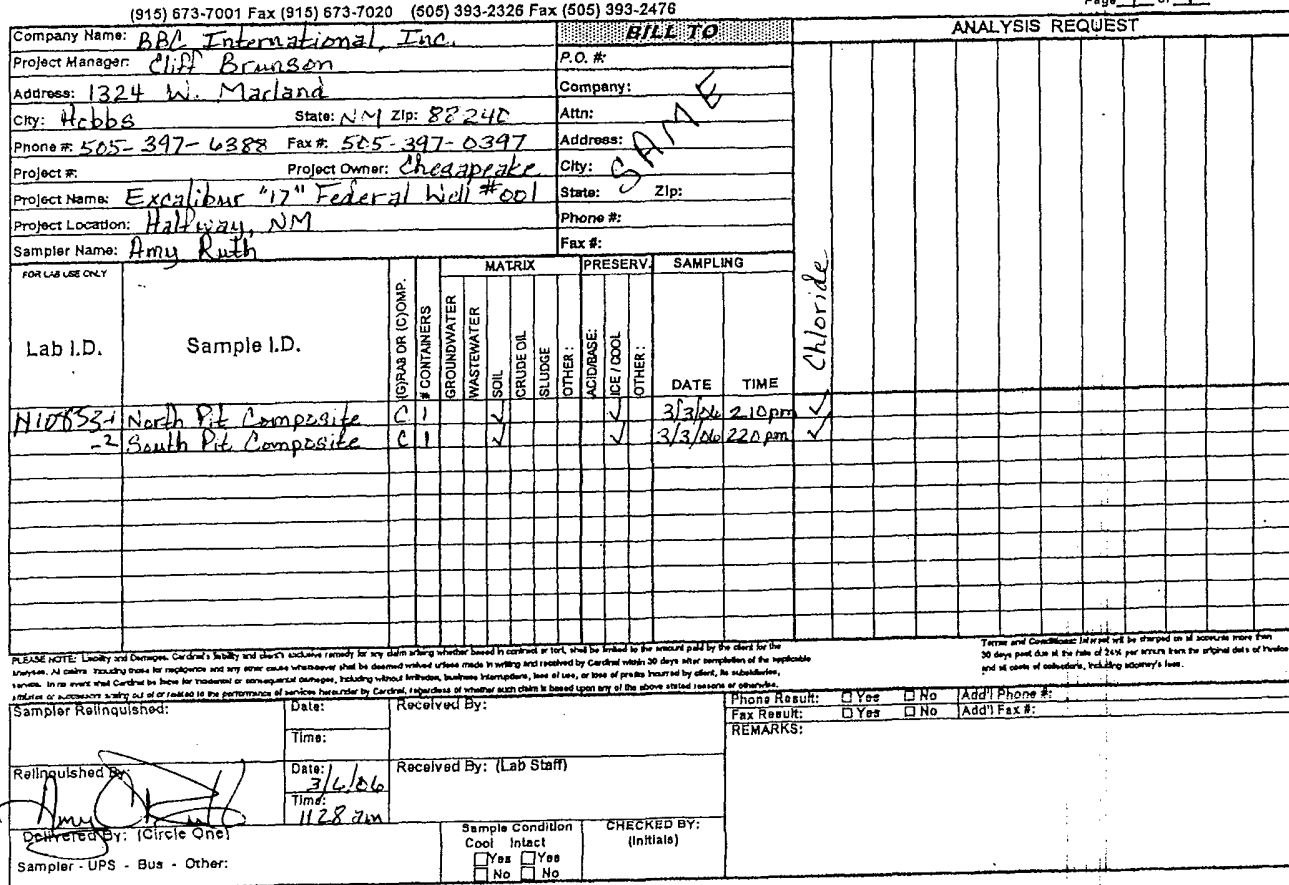 (915) 673-7001 Fax (915) 673-7020 (505) 393-2326 Fax (505) 393-2476
Page 1 of 1
Company Name: BBC International, Inc.
BILL TO
ANALYSIS REQUEST
Project Manager: Cliff Brunson
P.O. #:
Address: 1324 W. Marland
Company:
City: Hobbs State: NM Zip: 88240
Attn:
Phone #: 505-397-6388 Fax #: 505-397-0397
Address:
SAME
Project #: Project Owner: Chesapeake
City:
Project Name: Excalibur "17" Federal Well #001
State: Zip:
Project Location: Halfway, NM
Phone #:
Sampler Name: Amy Ruth
Fax #:
FOR LAB USE ONLY
MATRIX
PRESERV.
SAMPLING
Lab I.D.
Sample I.D.
(G)RAB OR (C)OMP.
# CONTAINERS
GROUNDWATER
WASTEWATER
SOIL
CRUDE OIL
SLUDGE
OTHER:
ACID/BASE:
ICE / COOL
OTHER:
DATE
TIME
Chloride
H10853-1 North Pit Composite C 1 ✓ ✓ 3/3/06 210 pm ✓
-2 South Pit Composite C 1 ✓ ✓ 3/3/06 220 pm ✓
PLEASE NOTE: Liability and Damages. Cardinal's liability and client's exclusive remedy for any claim arising whether based in contract or tort, shall be limited to the amount paid by the client for the
analyses. All claims including those for negligence and any other cause whatsoever shall be deemed waived unless made in writing and received by Cardinal within 30 days after completion of the applicable
service. In no event shall Cardinal be liable for incidental or consequential damages, including without limitation, business interruptions, loss of use, or loss of profits incurred by client, its subsidiaries,
affiliates or successors arising out of or related to the performance of services hereunder by Cardinal, regardless of whether such claim is based upon any of the above stated reasons or otherwise.
Terms and Conditions: Interest will be charged on all accounts more than
30 days past due at the rate of 24% per annum from the original date of invoice
and all costs of collections, including attorney's fees.
Sampler Relinquished:
Date:
Time:
Received By:
Phone Result: □ Yes □ No Add'l Phone #:
Fax Result: □ Yes □ No Add'l Fax #:
REMARKS:
Relinquished By:
Amy Ruth
Date: 3/6/06
Time: 1128 am
Received By: (Lab Staff)
Delivered By: (Circle One)
Sampler - UPS - Bus - Other:
Sample Condition
Cool Intact
□ Yes □ Yes
□ No □ No
CHECKED BY:
(Initials)